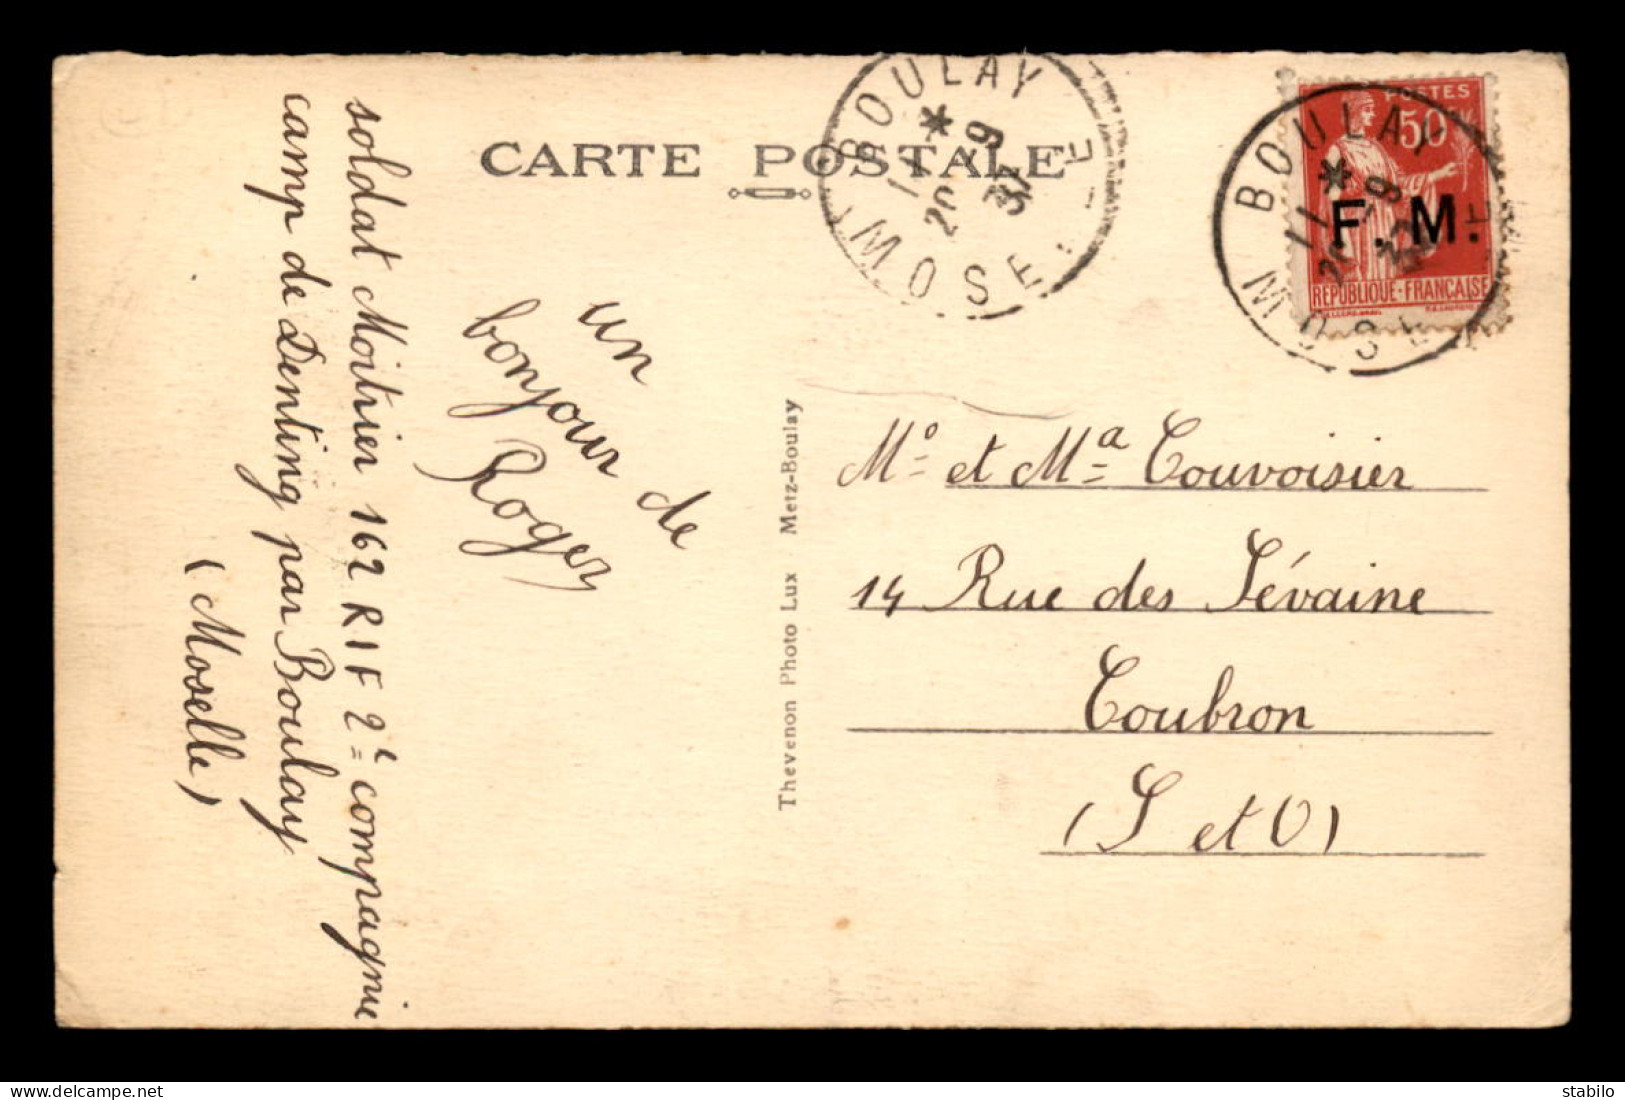 CARTE POSTALE
BOULAY
11 *
20 -9
37
MOSELLE
POSTES
50
F. M.
REPUBLIQUE-FRANÇAISE
BOULAY
11 *
20 -9
MOSELLE
soldat Moitrier 162 RIF 2e compagnie
camp de Denting par Boulay
(Moselle)
un
bonjour de
Roger
Thevenon Photo Lux . Metz-Boulay
Mo et Ma Couvoisier
14 Rue des Sévaine
Coubron
(S et O)
stabilo